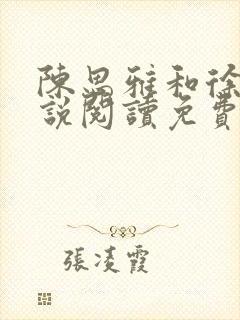 陳思雅和徐
說閱讀免費
張凌霞